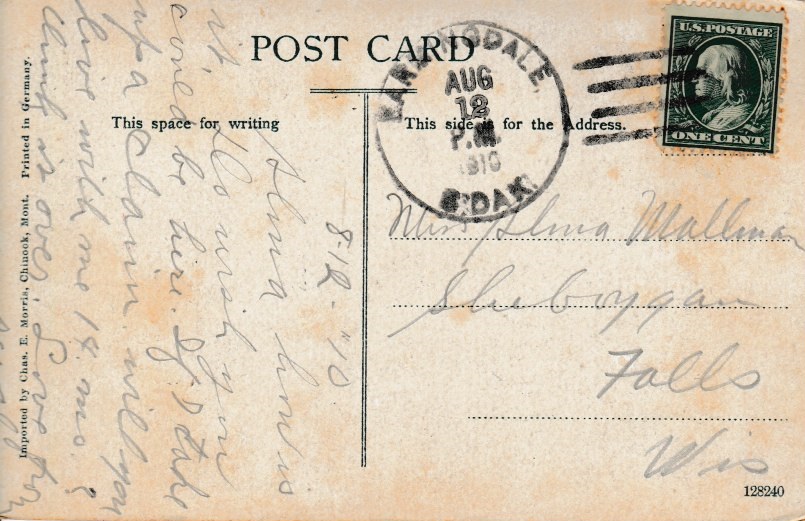 POST CARD
This space for writing
This side is for the Address.
AUG
12
P.M.
1910
S.DAK.
U.S. POSTAGE
ONE CENT
8-12-'10
Alma how is
it. Do wish you
could be here. If I take
up a claim will you
live with me 14 mo.?
is over. Love
Miss Alma Mallman
Sheboygan
Falls
Wis
128240
Imported by Chas. E. Morris, Chinook, Mont. Printed in Germany.